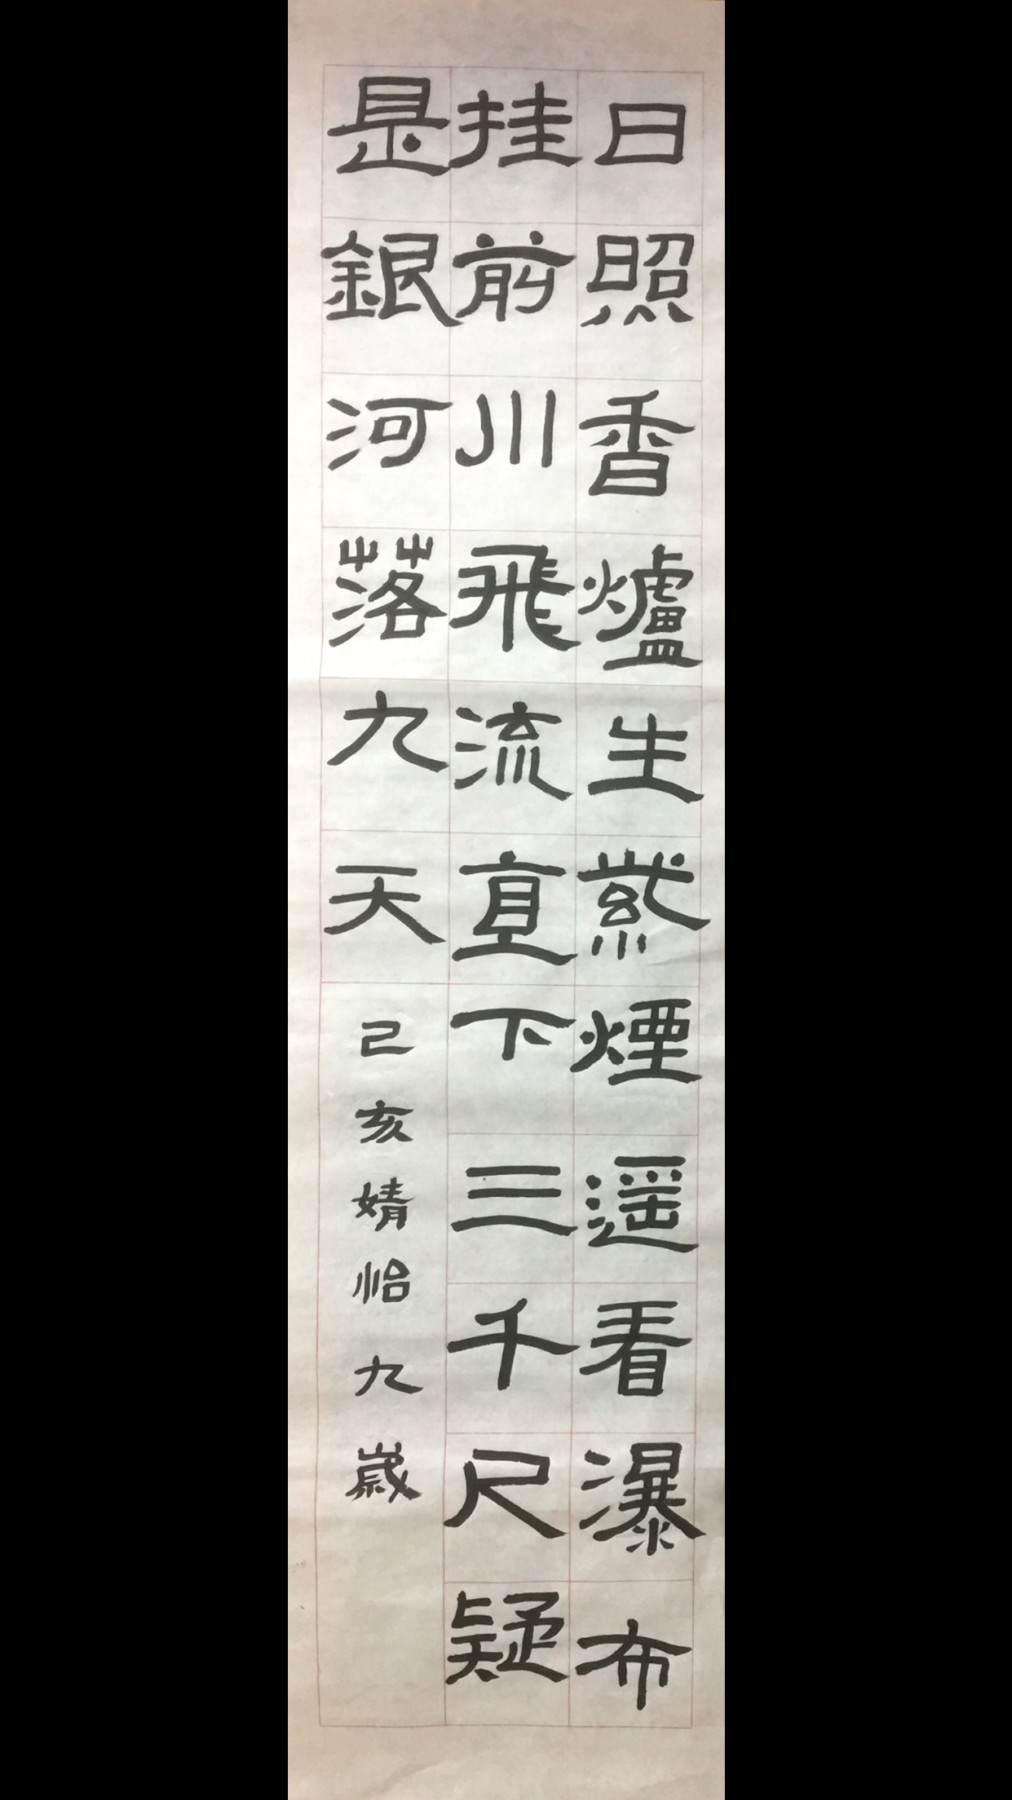 日照香爐生紫煙遥看瀑布
挂前川飛流直下三千尺疑
是銀河落九天
己亥婧怡九歲